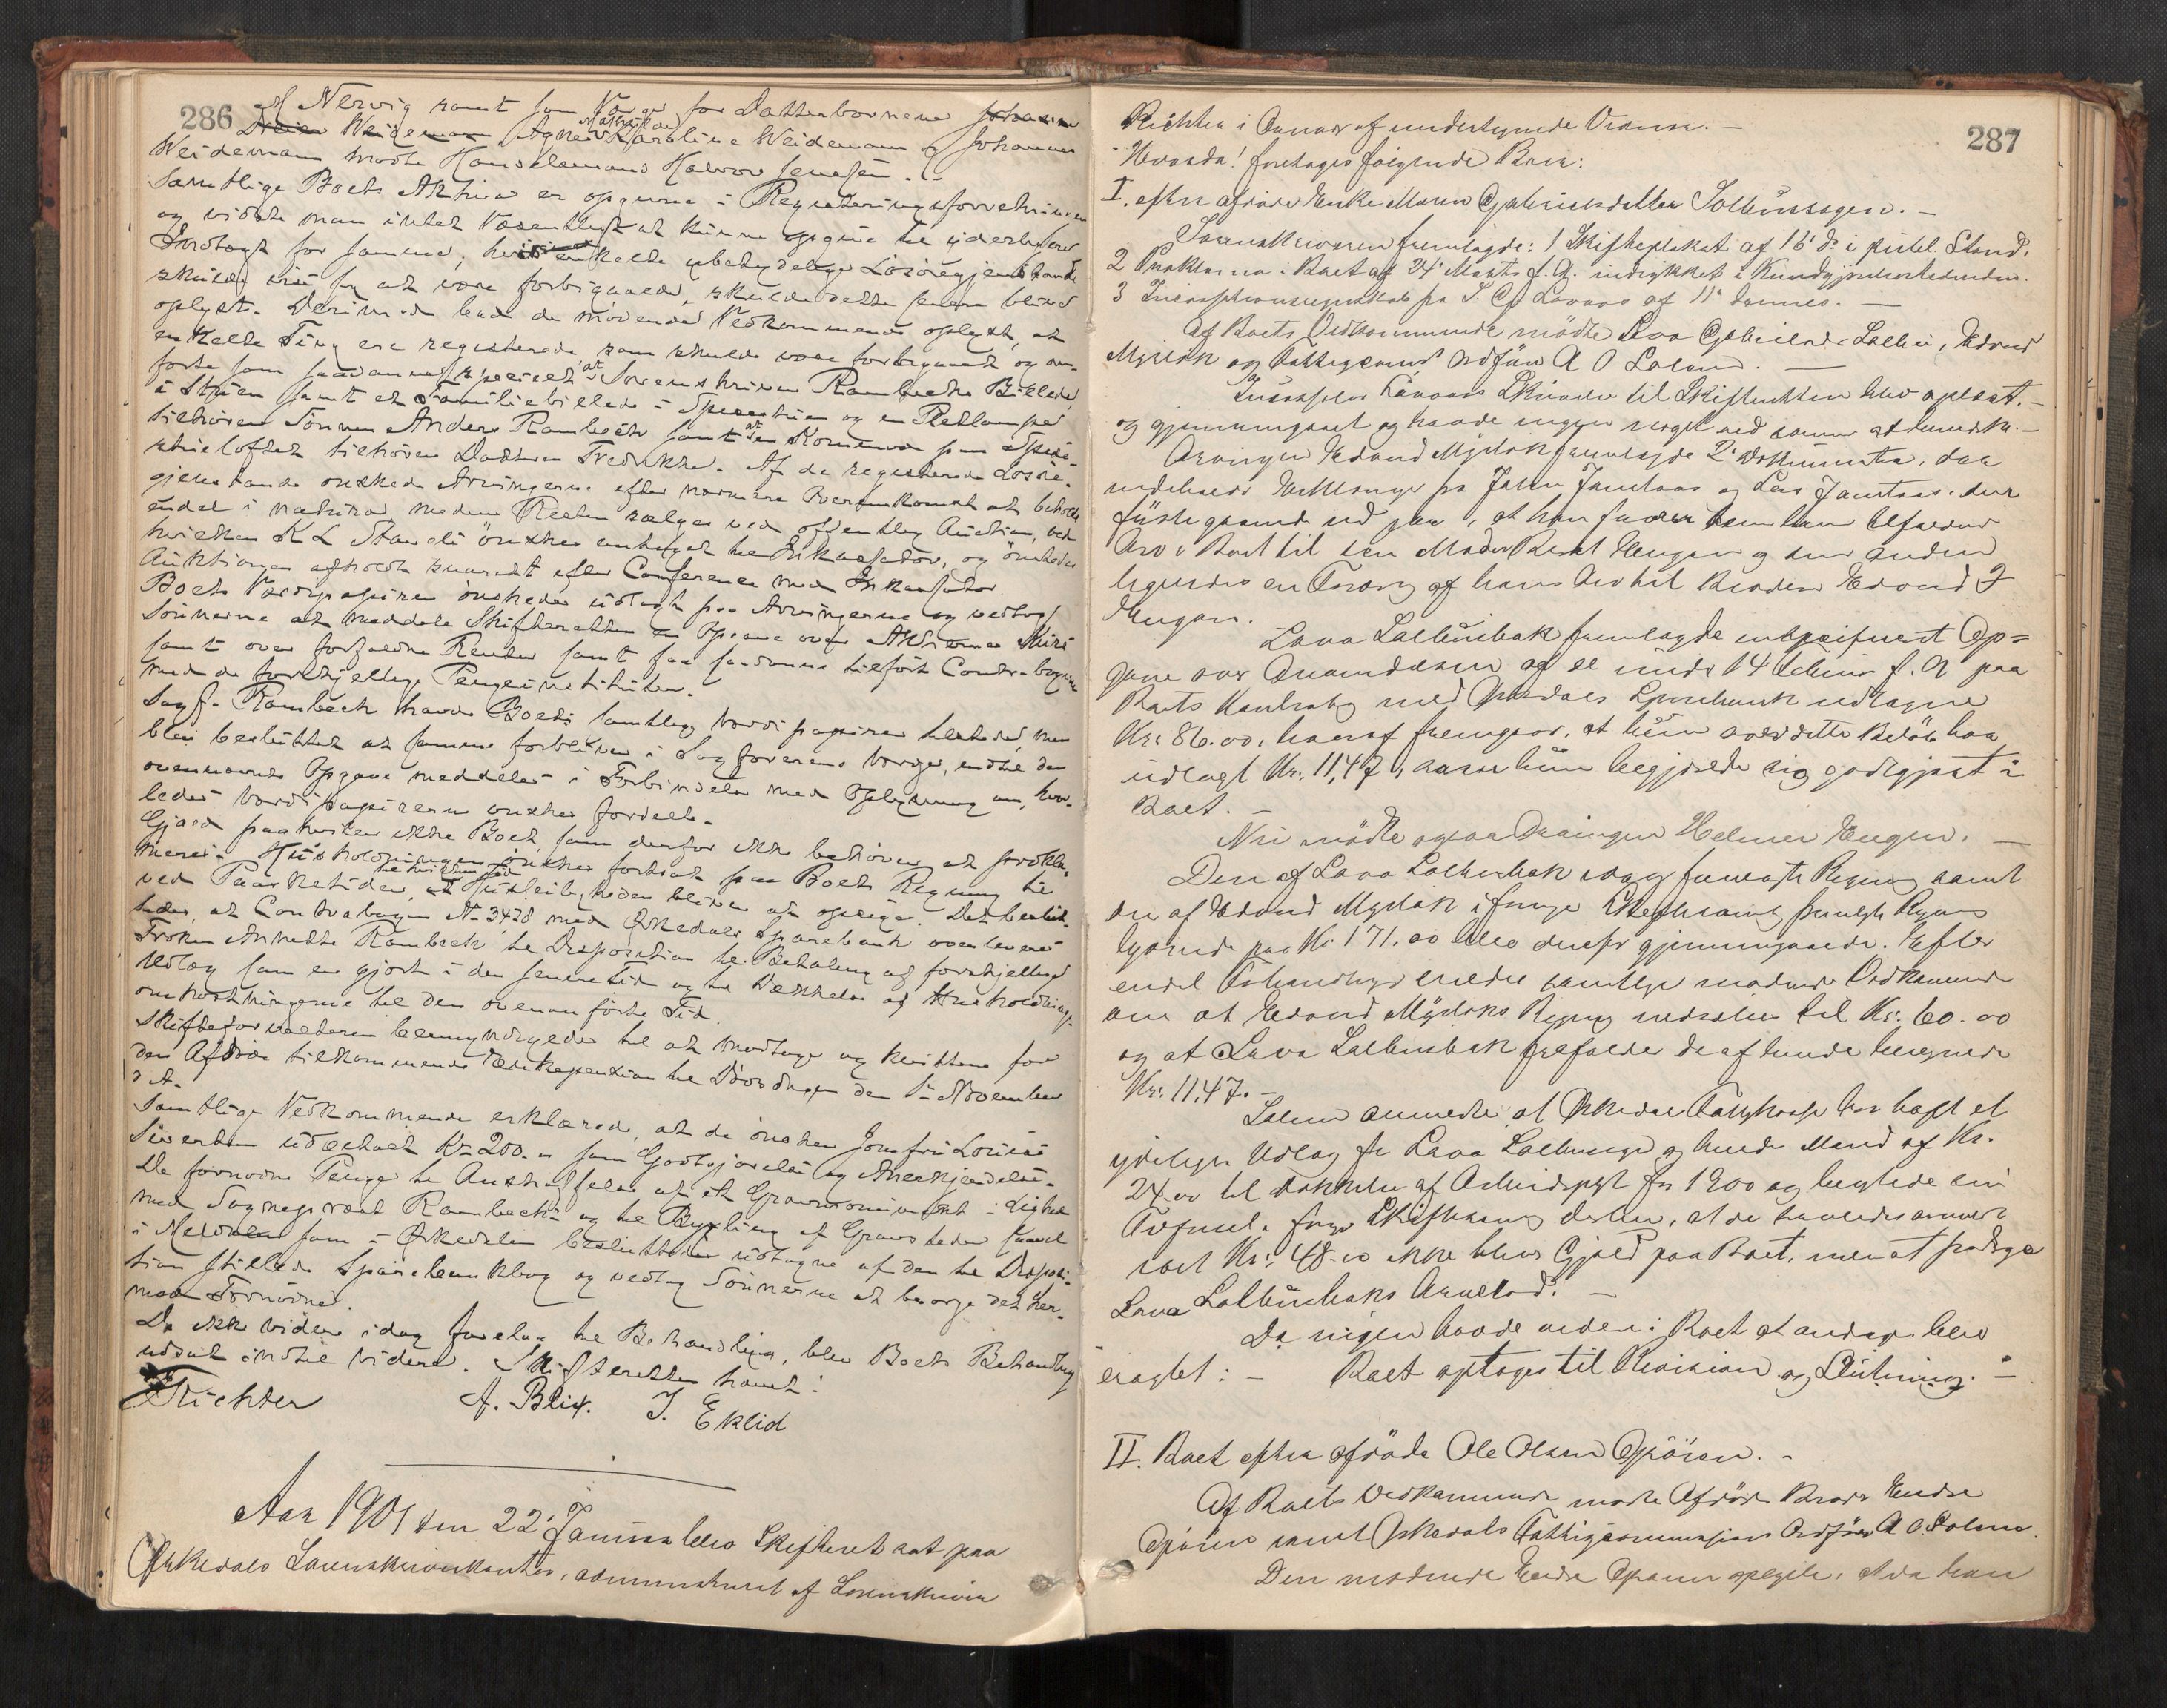 286
M Nervig samt som Værge for Datterbørnene Johanna
Weideman Agnes Mathilde Karoline Weidemann og Johannes
Weidemann mødte Handelsmand Halvor Jenssen.
Samtlige Boets Aktiva er opgivne i Registeringsforretningen
og vidste man intet Væsentligt at kunne opgive til yderligere
Indtægt for samme; hvis enkelte ubetydelige Løsøregjenstande
skulde vise sig at være forbigaaede, skulde dette senere blive
oplyst. Derimod blev de mødende Vedkommende oplyst, at
enkelte Ting ere registerede, som skulde være forbigaaet og an-
førte som saadanne specielt at Sorenskriver Rambecks Billede
i Stuen samt et Familiebillede i Spisestuen og en Pletlampe
tilhører Sønnen Anders Rambech samt at en Kommode paa Spise-
stueloftet tilhører Datteren Fredrikke. Af de registerede Løsøre-
gjenstande ønskede Arvingerne efter nærmere Overenskomst at beholde
endel i natura, medens Resten sælges ved offentlig Auction, ved
hvilken K L Standi ønskes antaget til Inkassator, og ønskedes
Auktionen afholdt snarest efter Conference med Inkassator.
Boets Værdipapirer ønskedes udlagt paa Arvingerne og vedtog
Sønnerne at meddele Skifteretten en Opgave over Aktiernes Kurs
samt over forfaldne Renter samt faa saadanne tilført Contra-bøgerne
med de forskjellige Pengeinstituter.
Sagf. Rambeck havde Boets samtlige Værdipapirer tilstede, men
blev besluttet at samme forbliver i Sagførerens Værge, indtil den
ovennævnte Opgave meddeles i Forbindelse med Oplysning om, hvor-
ledes Værdipapirerne ønskes fordelt.
Gjæld paahviler ikke Boet, som derfor ikke behøver at prokla-
meres. Husholdningen ønskes fortsat paa Boets Regning til
ved Paasketider, til hvilken Tid Husleiligheden bliver at opsige. Det beslut-
tedes, at Contrabogen No 3478 med Ørkedals Sparebank overleveres
Frøken Annette Rambeck til Disposition til Betaling af forskjellige
Udlæg som er gjort i den senere Tid og til Dækkelse af Husholdnings-
omkostningerne til den ovenanførte Tid.
Skifteforvalteren bemyndigedes til at modtage og kvittere for
den Afdøde tilkommende Enkepension til Dødsdagen den 5 November
d A.
Samtlige Vedkommende erklærede, at de ønsker Jomfru Lovise
Sivertsen udbetalt Kr 200.00 som Godtgjørelse og Anerkjendelse.
De fornødne Penge til Anskaffelse af et Gravmonument i Lighed
med Sognepræst Rambecks og til Bygsling af Gravsteder saavel
i Meldalen som i Ørkedalen besluttedes udtagne af den til Disposi-
tion stillede Sparebankbog og vedtog Sønnerne at besørge det her-
med Fornødne.
Da ikke videre idag forelaa til Behandling, blev Boets Behandling
udsat indtil videre. Skifteretten hævet!
Richter A. Blix. J. Eklid
Aar 1901 den 22' Januar blev Skifteret sat paa
Ørkedals Sorenskriverkontor, administreret af Sorenskriver
287
Richter i Overvær af undertegnede Vidner. —
Hvorda! foretoges følgende Boer:
I. efter afdøde Enke Maren Gabrielsdatter Solbusøgen. —
Sorenskriveren fremlagde: 1 Skifteplakat af 16' ds. i pitel. Stand.
2 Proklama i Boet af 24' Marts f. A. indrykket i Kundgjørelsestidenden.
3 Incassationsregnskab fra S. Cp Lavaas af 11' dennes. —
Af Boets Vedkommende mødte Lava Gabrielsd. Solbu, Edvard
Myrbak og Fattigcomms Ordfører A O Solem. —
Incassator Lavaas Skrivelse til Skifteretten blev oplæst. —
og gjennemgaaet og havde ingen noget ved samme at bemærke. —
Arvingen Edvard Myrbak fremlagde 2' Dokumenter, den
ene fra John Jamtaas og Lars Jamtaas. den
første gaaende ud paa, at han
Arv i Boet til sin Moder Beret Haugen og den anden
ligesaadan en Transp. af hans Arv til Broderen Edvard J
Haugen.
Lava Solbusbak fremlagde en specificeret Op-
gave over Anvendelsen af et under 14 Februar f. A paa
Boets Kontrabog med Ørkedals Sparebank udtagne
Kr: 86.00, hvoraf fremgaar, at hun over dette Beløb har
udlagt Kr: 11,47, som hun begjærede sig godtgjort i
Boet. —
Nu mødte ogsaa Arvingen Helmer Haugen. —
Den af Lava Solbusbak idag fremlagte Regning samt
den af Edvard Myrbak i forrige Skiftesamling fremlagte Regning
lydende paa Kr 171.00 blev derefter gjennemgaaede. Efter
endel Forhandlinger enedes samtlige mødende Vedkommende
om at Edvard Myrbaks Regning nedsættes til Kr: 60.00
og at Lava Solbusbak frafalder de af hende beregnede
Kr: 11,47. —
Solem anmeldte, at Ørkedal Fattigkasse har havt et
yderligere Udlæg for Lava Solbusøgen og hendes Mand af Kr.
24.00 til Dækkelse af Arbeidspligt for 1900 og begjærede sin
Tilførsel i forrige Skiftesamling derhen, at de saaledes anmeld-
ard Kr: 48.00 ikke bliver Gjæld paa Boet, men at fradrage
Lava Solbusbaks Arvelod. —
Da ingen havde videre i Boet at andrage blev
eragtet: — Boet optages til Revision og Slutning. —
II. Boet efter afdøde Ole Olsen Gjøien. —
Af Boets Vedkommende mødte Afdødes Broder Endre
Gjøien samt Ørkedals Fattigcommissions Ordfører A O Solem.
Den mødende Endre Gjøien oplyste, at da han